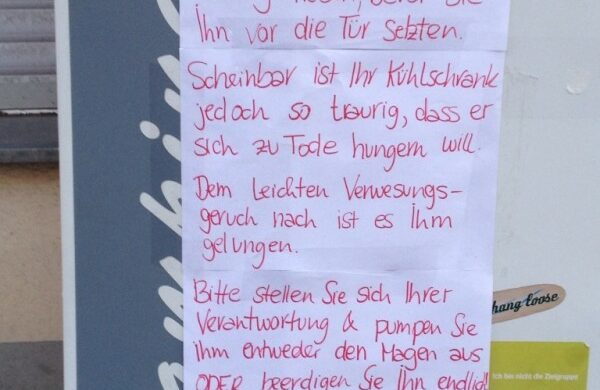 Ihn vor die Tür setzten.
Scheinbar ist Ihr Kühlschrank
jedoch so traurig, dass er
sich zu Tode hungern will.
Dem leichten Verwesungs-
geruch nach ist es Ihm
gelungen.
Bitte stellen Sie sich Ihrer
Verantwortung & pumpen Sie
Ihm entweder den Magen aus
ODER beerdigen Sie Ihn endlich
hang loose
Ich bin nicht die Zielgruppe